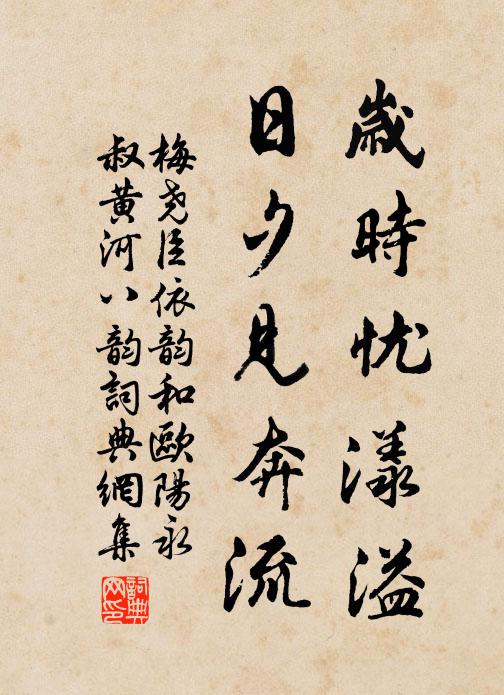 歲時忧漾溢
日夕見奔流
梅尧臣依韵和歐陽永
叔黄河八韵詞典網集
詞典
网印